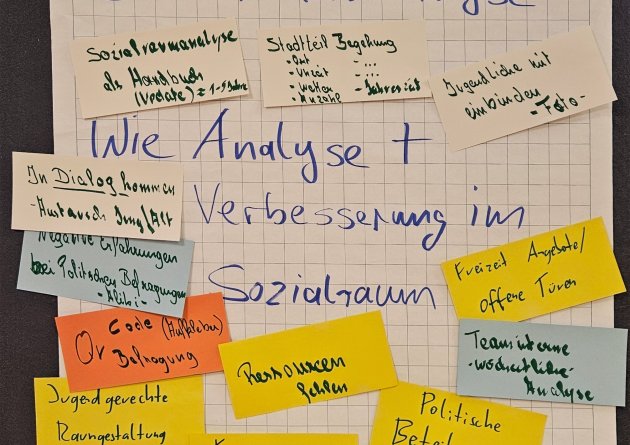 Sozialraumanalyse
als Handbuch
(Update) = 1-5 Jahre
Stadtteil Begehung
- Ort - ...
- Uhrzeit - ...
- Wetter - Jahreszeit
- Anzahl
Jugendliche mit
einbinden
- Foto -
Wie Analyse +
Verbesserung im
Sozialraum
In Dialog kommen
- Austausch Jung/Alt
Negative Erfahrungen
bei Politischen Befragungen
- Alibi -
Qr Code (Aufkleber)
Befragung
Ressourcen
fehlen
Freizeit Angebote/
offene Türen
Teaminterne
- wöchentliche -
Analyse
Jugendgerechte
Raumgestaltung
Politische